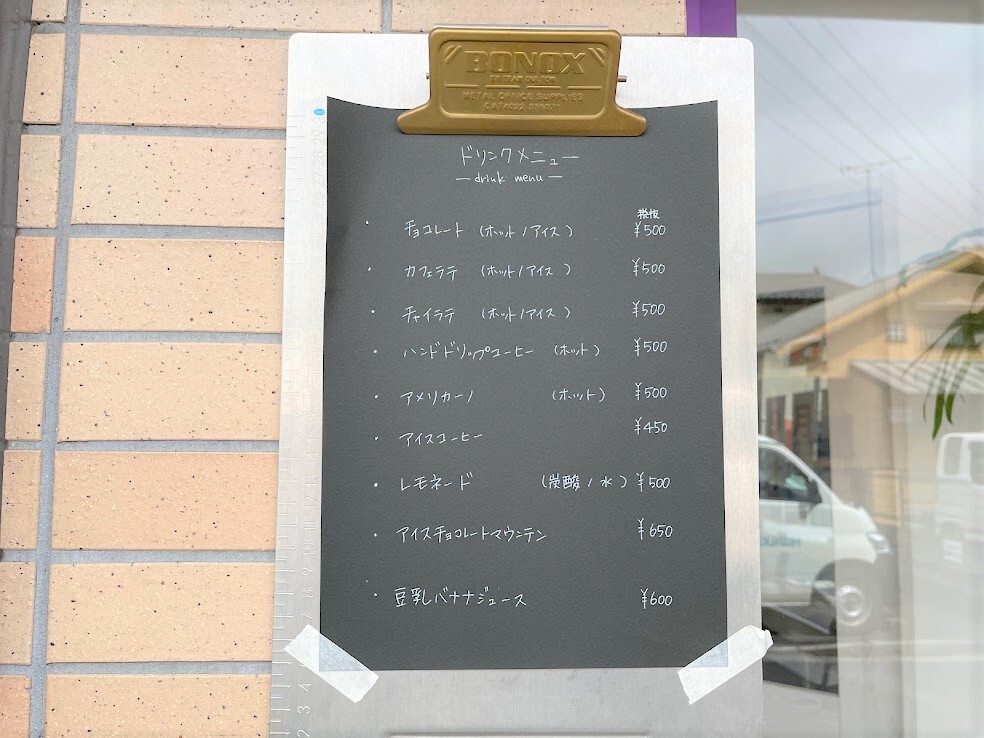 BONOX
METAL OFFICE SUPPLIES
ドリンクメニュー
— drink menu —
税抜
・ チョコレート (ホット/アイス) ¥500
・ カフェラテ (ホット/アイス) ¥500
・ チャイラテ (ホット/アイス) ¥500
・ ハンドドリップコーヒー (ホット) ¥500
・ アメリカーノ (ホット) ¥500
・ アイスコーヒー ¥450
・ レモネード (炭酸/水) ¥500
・ アイスチョコレートマウンテン ¥650
・ 豆乳バナナジュース ¥600